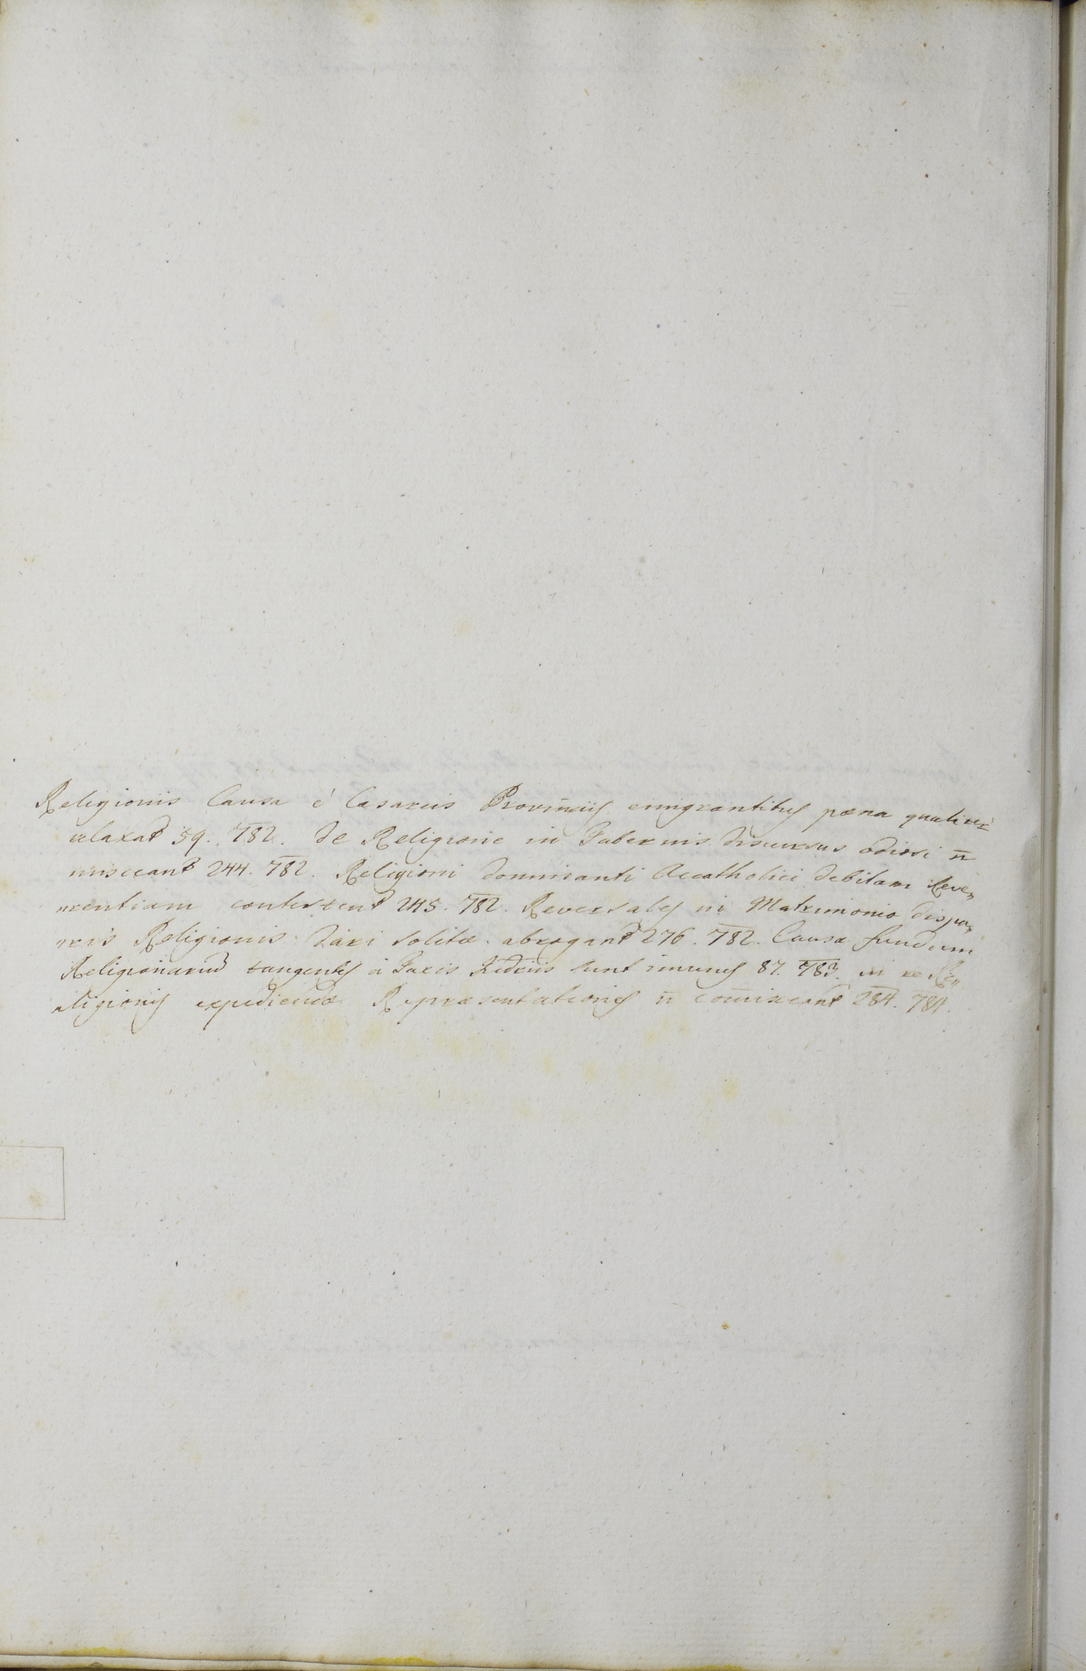 Religionis Causa é Caesareis Provinciis emigrantibus poena qualiter
relaxat 59. 782. De Religione in Tabernis discursus odiosi n̄
misceant 244. 782. Religioni dominanti Accatholici debitam Reve„
rentiam contestent 245. 782. Reversales in Matrimonio dispa„
ris Religionis dari solitae abrogant 276. 782. Causae fundum
Religionariu tangentes à Taxis Iudiciis sunt im̄unes 87. 783. in re Re„
ligionis expediendae Repraesentationes n̄ com̄isceant 284. 784.